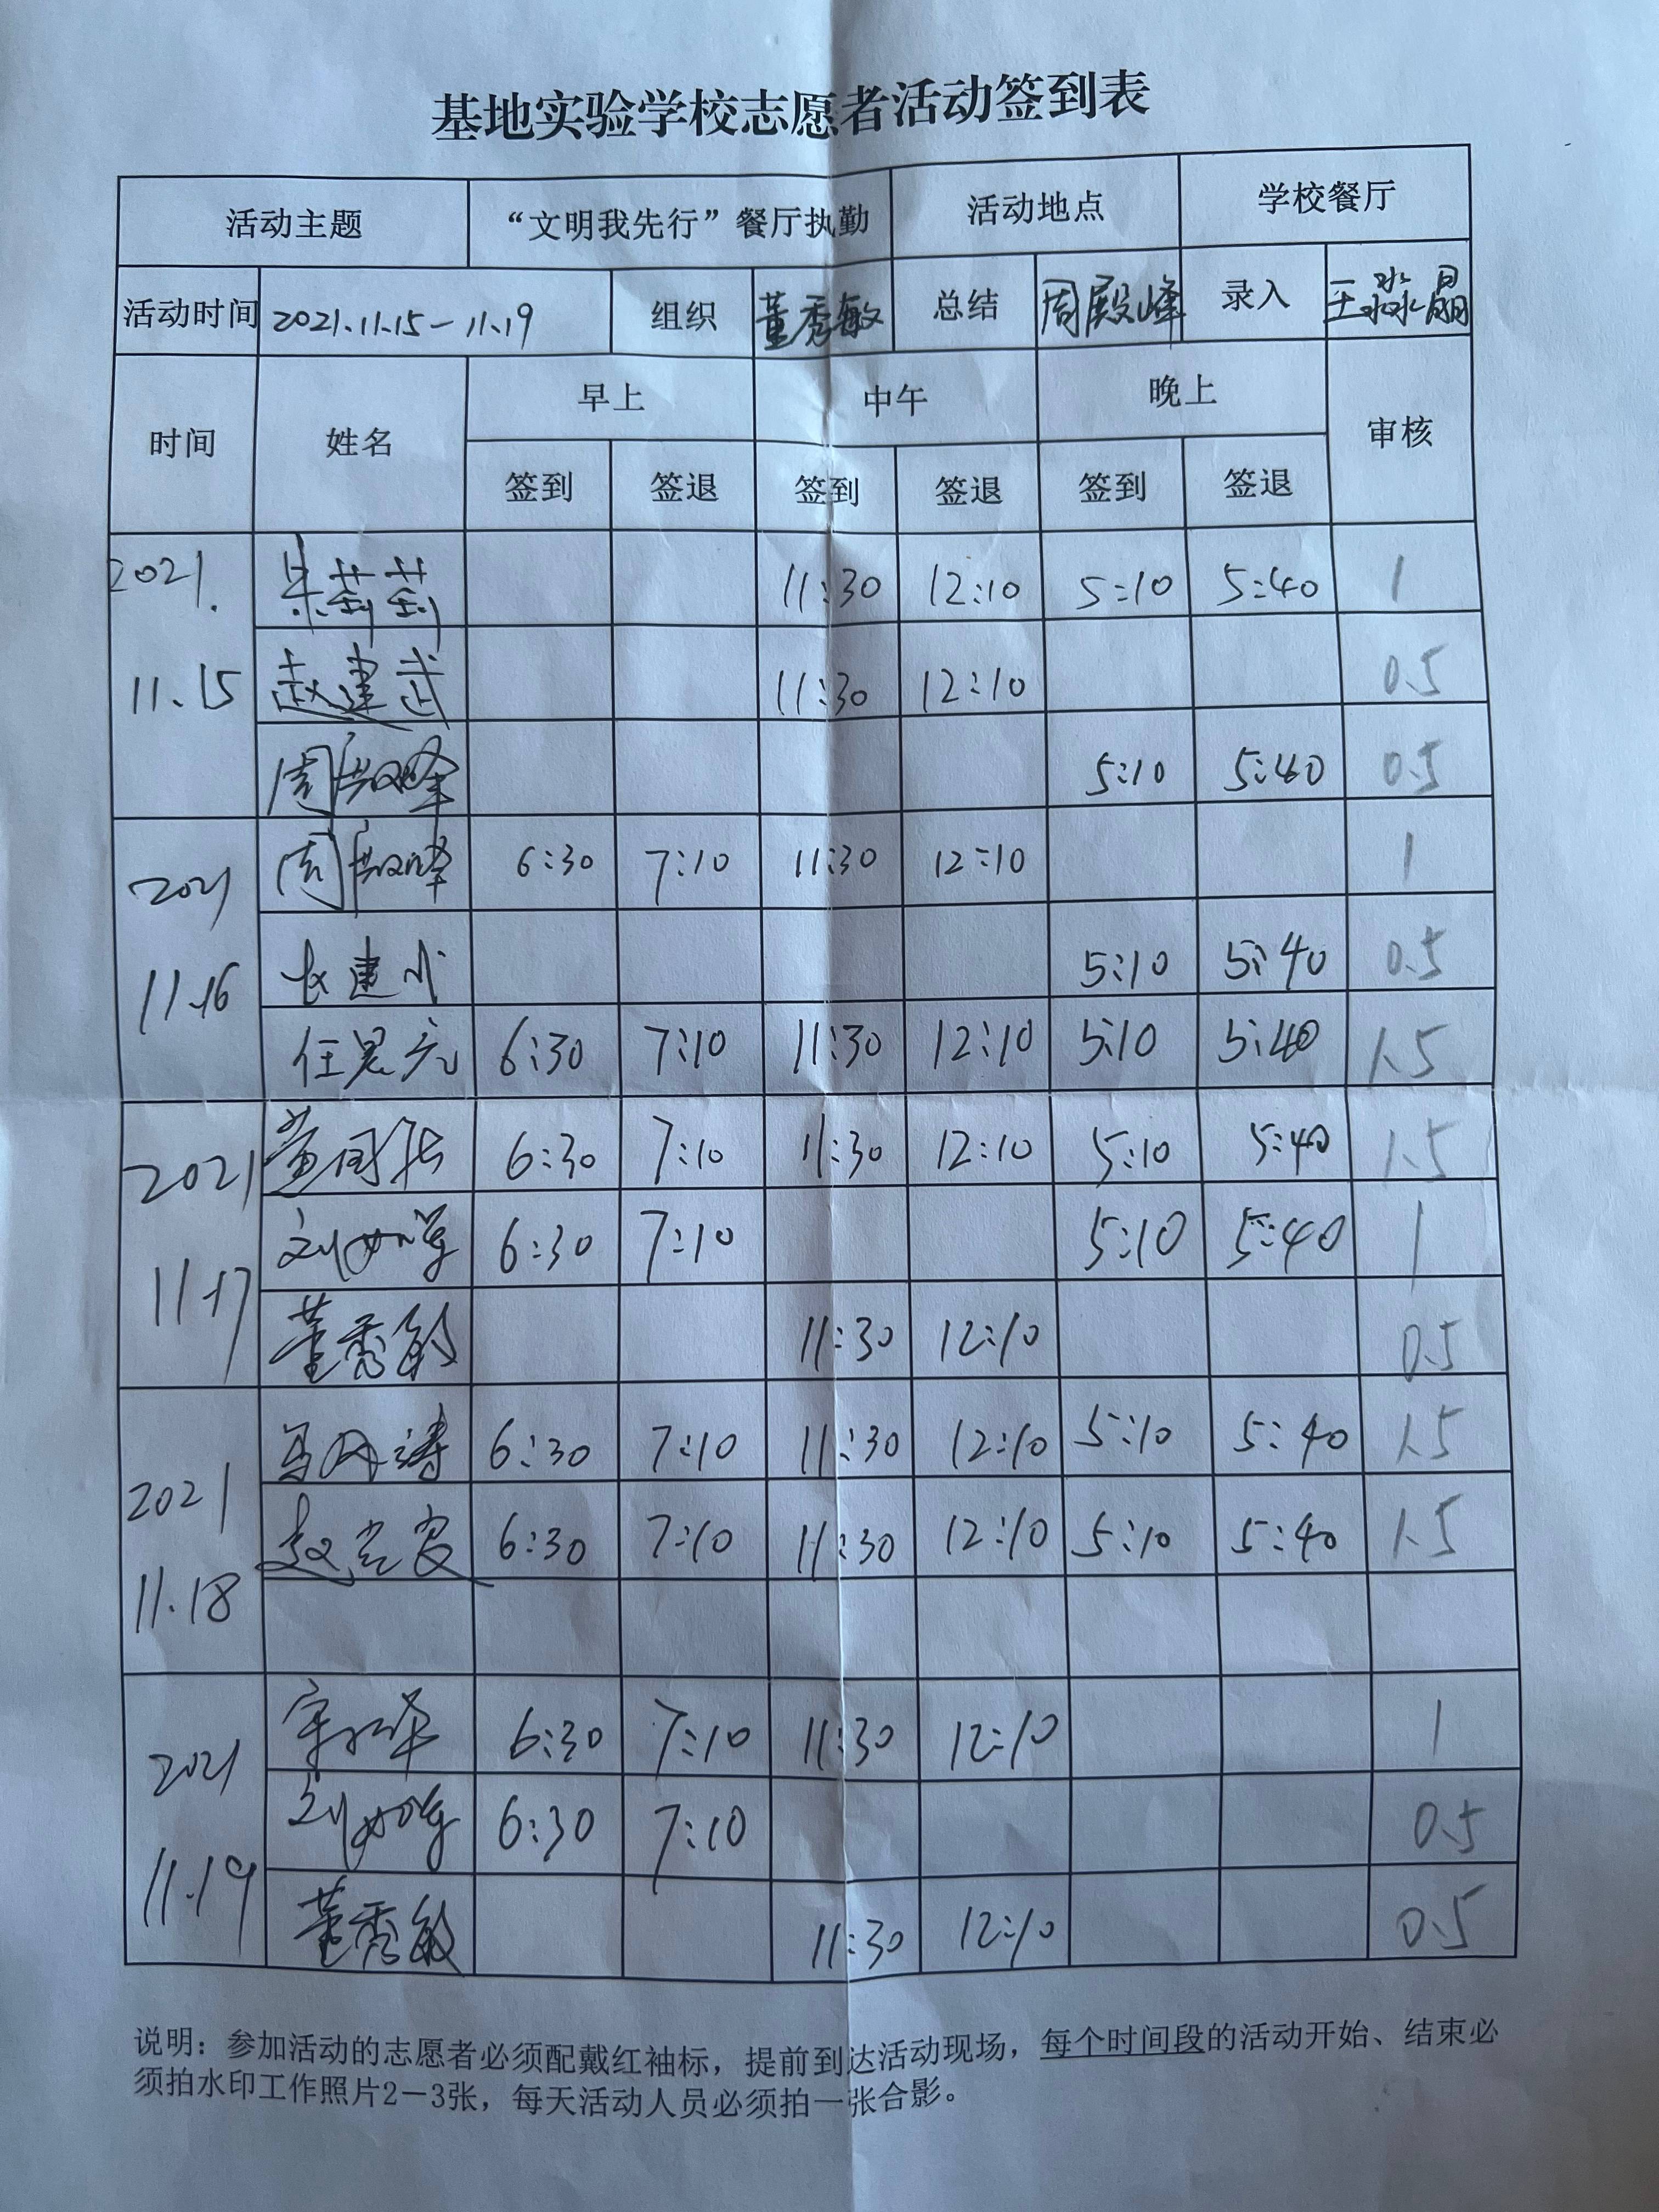 基地实验学校志愿者活动签到表
活动主题 “文明我先行”餐厅执勤 活动地点 学校餐厅
活动时间 2021.11.15-11.19 组织 董秀敏 总结 周殿峰 录入 王淼晶
时间 姓名 早上 中午 晚上 审核
签到 签退 签到 签退 签到 签退
2021. 朱莉莉 11:30 12:10 5:10 5:40 1
11.15 赵建武 11:30 12:10 0.5
周殿峰 5:10 5:40 0.5
2021 周殿峰 6:30 7:10 11:30 12:10 1
11.16 建 5:10 5:40 0.5
任思元 6:30 7:10 11:30 12:10 5:10 5:40 1.5
2021 6:30 7:10 11:30 12:10 5:10 5:40 1.5
11.17 刘 6:30 7:10 5:10 5:40 1
董秀敏 11:30 12:10 0.5
2021 马 涛 6:30 7:10 11:30 12:10 5:10 5:40 1.5
11.18 赵 6:30 7:10 11:30 12:10 5:10 5:40 1.5
2021 6:30 7:10 11:30 12:10 1
11.19 刘 6:30 7:10 0.5
董秀敏 11:30 12:10 0.5
说明：参加活动的志愿者必须配戴红袖标，提前到达活动现场，每个时间段的活动开始、结束必
须拍水印工作照片2－3张，每天活动人员必须拍一张合影。